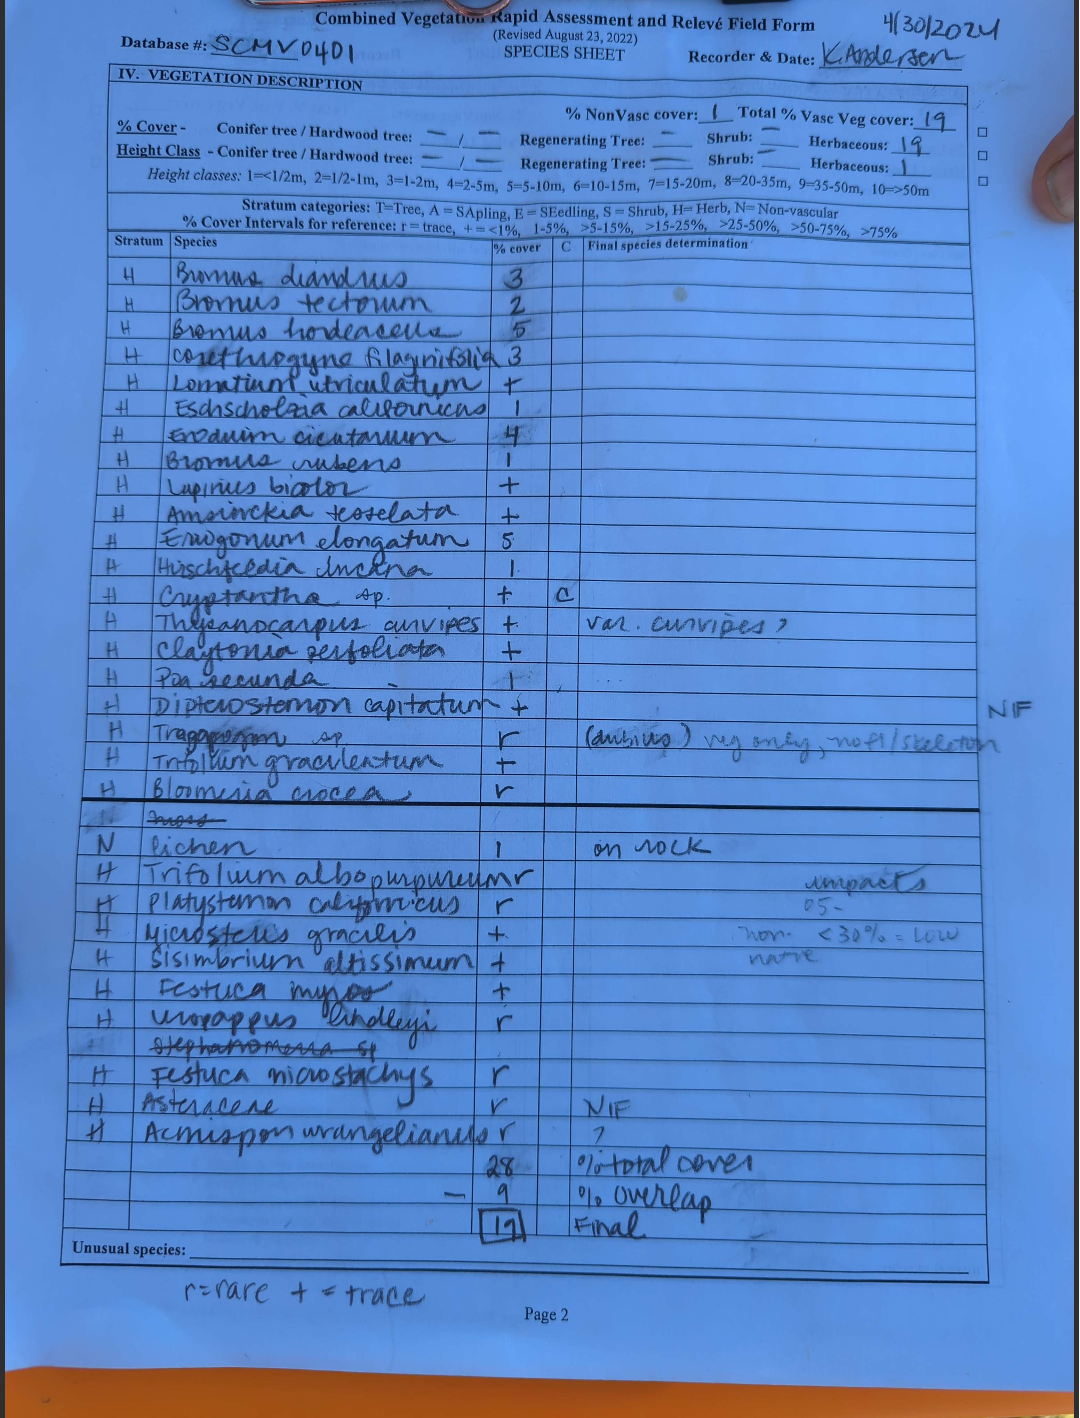 Combined Vegetation Rapid Assessment and Relevé Field Form
4/30/2024
(Revised August 23, 2022)
Database #: SCMV0401
SPECIES SHEET
Recorder & Date: K. Andersen
IV. VEGETATION DESCRIPTION
% NonVasc cover: 1 Total % Vasc Veg cover: 19
% Cover - Conifer tree / Hardwood tree: — / — Regenerating Tree: — Shrub: — Herbaceous: 19
Height Class - Conifer tree / Hardwood tree: — / — Regenerating Tree: — Shrub: — Herbaceous: 1
Height classes: 1=<1/2m, 2=1/2-1m, 3=1-2m, 4=2-5m, 5=5-10m, 6=10-15m, 7=15-20m, 8=20-35m, 9=35-50m, 10=>50m
Stratum categories: T=Tree, A = SApling, E = SEedling, S = Shrub, H= Herb, N= Non-vascular
% Cover Intervals for reference: r = trace, + = <1%, 1-5%, >5-15%, >15-25%, >25-50%, >50-75%, >75%
Stratum Species % cover C Final species determination
H Bromus diandrus 3
H Bromus tectorum 2
H Bromus hordeaceus 5
H Corethrogyne filaginifolia 3
H Lomatium utriculatum +
H Eschscholzia californicus 1
H Eroduim cicutarium 4
H Bromus rubens 1
H Lupinus bicolor +
H Amsinckia teselata +
H Eriogonum elongatum 5
H Hirschfeldia incana 1
H Cryptantha sp. + C
H Thysanocarpus curvipes + var. curvipes ?
H Claytonia perfoliata +
H Poa secunda 1
H Dipterostemon capitatum + NIF
H Tragapogon sp r (dubius) veg only, no fl/skeleton
H Trifolium gracilentum +
H Bloomeria crocea r
moss
N lichen 1 on rock
H Trifolium albopurpureum r
impacts
H Platystemon californicus r
05-
H Microsteris gracilis +
non- <30% = low
native
H Sisimbrium altissimum +
H Festuca myros +
H Uropappus lindleyi r
Stephanomeria sp
H Festuca microstachys r
H Asteraceae r NIF
H Acmispon wrangelianus r ?
28 % total cover
— 9 % overlap
19 Final
Unusual species:
r=rare + = trace
Page 2